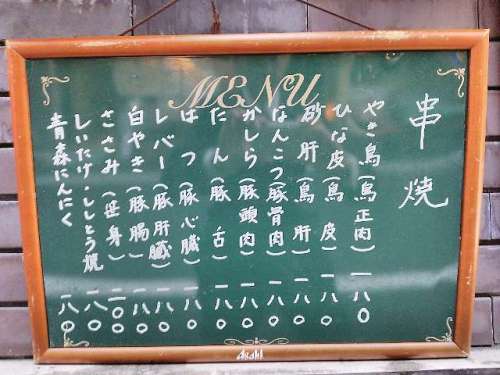 MENU
串焼
やき鳥（鳥正肉） 一八〇
ひな皮（鳥皮） 一八〇
砂肝（鳥肝） 一八〇
なんこつ（豚骨肉） 一八〇
かしら（豚頭肉） 一八〇
たん（豚舌） 一八〇
はつ（豚心臓） 一八〇
レバー（豚肝臓） 一八〇
白やき（豚腸） 一八〇
ささみ（笹身） 二〇〇
しいたけ・ししとう焼 一八〇
青森にんにく 一八〇
Asahi